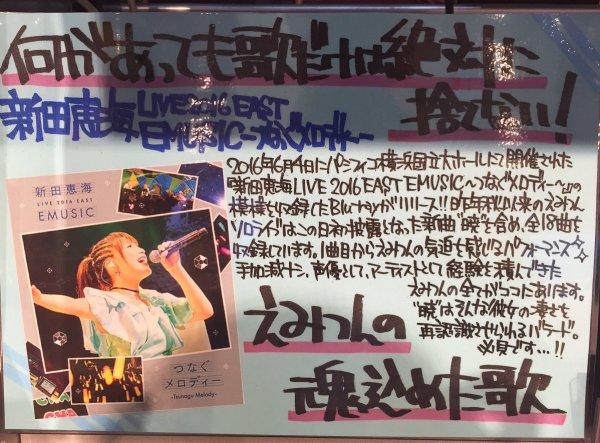 何があっても歌だけは絶対に
捨てない!
新田恵海 LIVE2016 EAST
EMUSIC〜つなぐメロディー〜
2016年6月4日にパシフィコ横浜国立大ホールにて開催された
「新田恵海LIVE 2016 EAST EMUSIC〜つなぐメロディー〜」の
模様を収録したBlu-rayがリリース!!昨年秋以来のえみつん
ソロライブはこの日初披露となった新曲"暁"を含め、全18曲を
収録しています。1曲目からえみつんの気迫を感じるパフォーマンス
手加減ナシ。声優として、アーティストとして経験を積んできた
えみつんの全てがココにあります。
"暁"はそんな彼女の凄さを
再認識させられるバラード。
必見です…!!
えみつんの
魂込めた歌
新田恵海
LIVE 2016 EAST
EMUSIC
つなぐ
メロディー
-Tsunagu Melody-